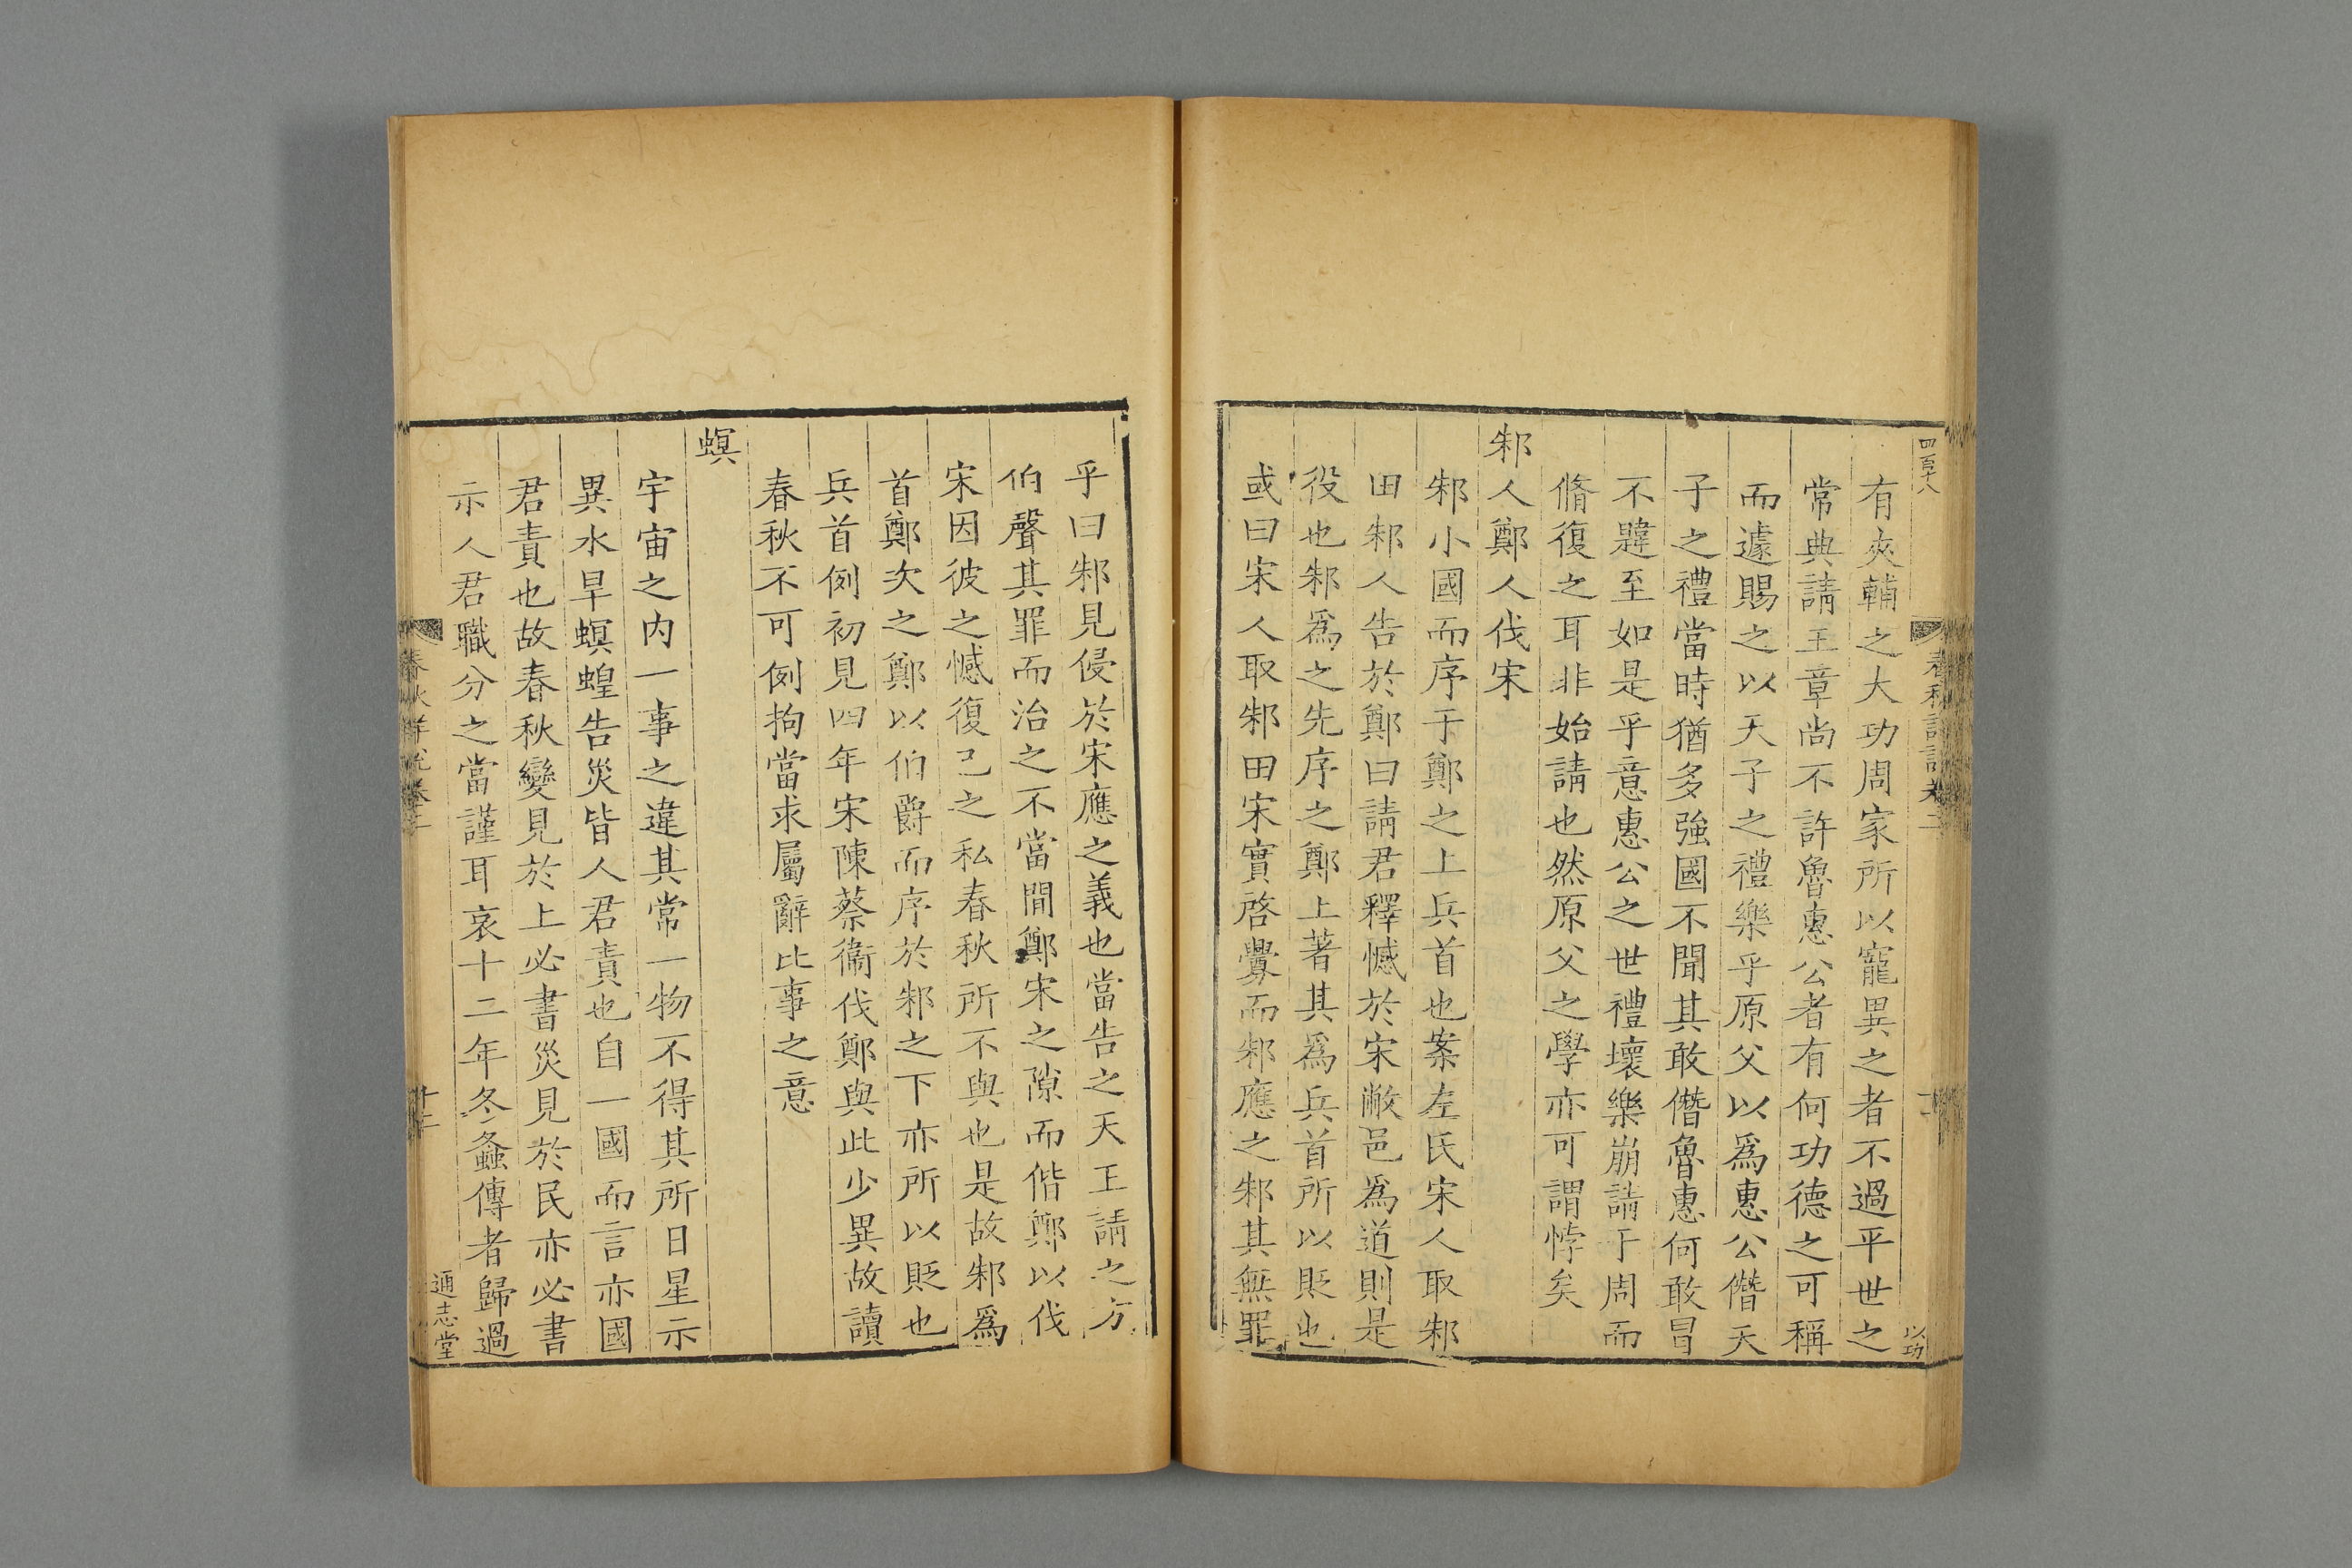 四百十八
有夾輔之大功周家所以寵異之者不過平世之
常典請王章尚不許魯惠公者有何功德之可稱
而遽賜之以天子之禮樂乎原父以爲惠公僭天
子之禮當時猶多強國不聞其敢僭魯惠何敢冒
不韙至如是乎意惠公之世禮壞樂崩請于周而
脩復之耳非始請也然原父之學亦可謂悖矣
邾人鄭人伐宋
邾小國而序于鄭之上兵首也案左氏宋人取邾
田邾人告於鄭曰請君釋憾於宋敝邑爲道則是
役也邾爲之先序之鄭上著其爲兵首所以貶也
或曰宋人取邾田宋實啓釁而邾應之邾其無罪
以功
乎曰邾見侵於宋應之義也當告之天王請之方
伯聲其罪而治之不當間鄭宋之隙而偕鄭以伐
宋因彼之憾復己之私春秋所不與也是故邾爲
首鄭次之鄭以伯爵而序於邾之下亦所以貶也
兵首例初見四年宋陳蔡衞伐鄭與此少異故讀
春秋不可例拘當求屬辭比事之意
螟
宇宙之内一事之違其常一物不得其所日星示
異水旱螟蝗告災皆人君責也自一國而言亦國
君責也故春秋變見於上必書災見於民亦必書
示人君職分之當謹耳哀十二年冬螽傳者歸過
春秋詳說卷二
十二
通志堂